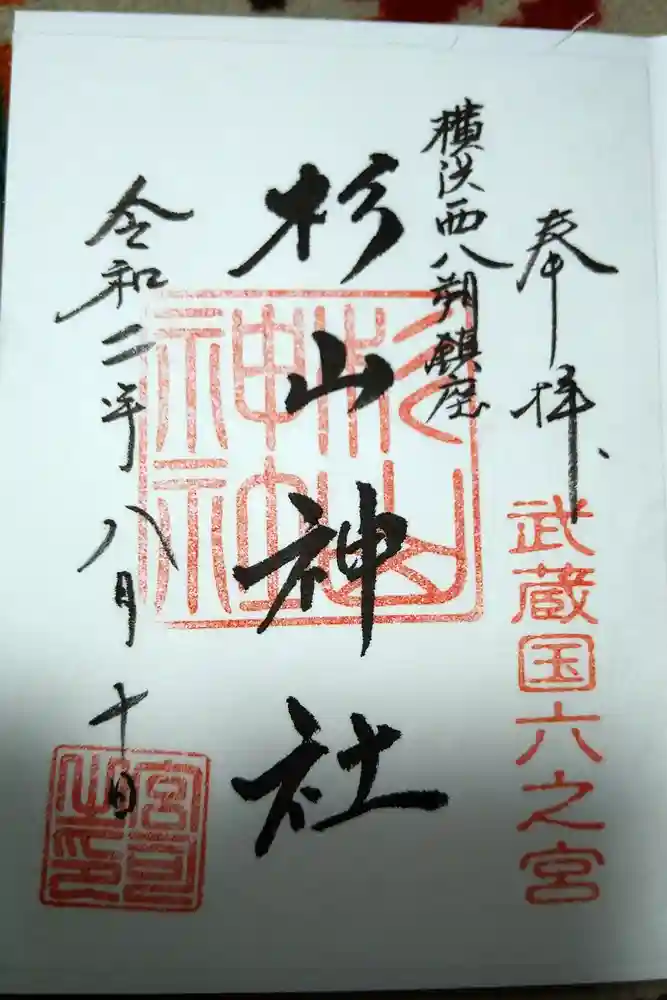 奉拝
武蔵国六之宮
横浜西八朔鎮座
杉山神社
杉山神社
令和二年八月十日
宮司之印